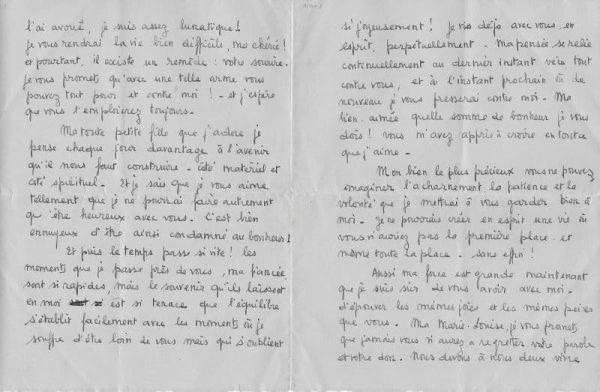 l'ai avoué, je suis assez lunatique!
je vous rendrai la vie bien difficile, ma chérie!
et pourtant, il existe un remède: votre sourire.
je vous promets qu'avec une telle arme vous
pouvez tout pour et contre moi! - et j'espère
que vous l'emploierez toujours.
Ma toute petite fille que j'adore je
pense chaque jour davantage à l'avenir
qu'il nous faut construire - côté matériel et
côté spirituel - Et je sais que je vous aime
tellement que je ne pourrai faire autrement
qu'être heureux avec vous. C'est bien
ennuyeux d'être ainsi condamné au bonheur!
Et puis le temps passe si vite! les
moments que je passe près de vous, ma fiancée
sont si rapides, mais le souvenir qu'ils laissent
en moi est si tenace que l'équilibre
s'établit facilement avec les moments où je
souffre d'être loin de vous mais qui s'oublient
si joyeusement! Je vis déjà avec vous en
esprit, perpétuellement. Ma pensée se relie
continuellement au dernier instant vécu tout
contre vous, et à l'instant prochain où de
nouveau je vous presserai contre moi - Ma
bien aimée quelle somme de bonheur je vous
dois! Vous m'avez appris à croire en tout ce
que j'aime -
Mon bien le plus précieux vous ne pouvez
imaginer l'acharnement la patience et la
volonté que je mettrai à vous garder bien à
moi - Je ne pourrais créer en esprit une vie où
vous n'auriez pas la première place - et
même toute la place - sans effroi!
Aussi ma force est grande maintenant
que je suis sûr de vous avoir avec moi -
d'épouver les mêmes joies et les mêmes peines
que vous. Ma Marie-Louise, je vous promets
que jamais vous n'aurez à regretter votre parole
et votre don. Nous devons à nous deux vivre